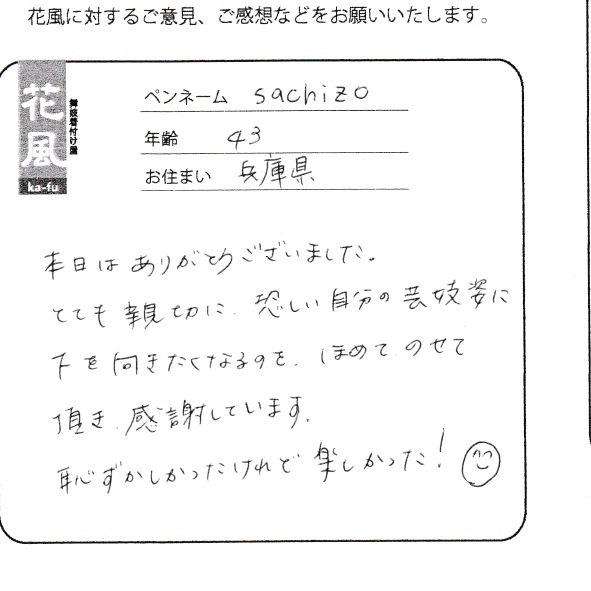 花風に対するご意見、ご感想などをお願いいたします。
花風
舞妓着付け屋
ka-fu
ペンネーム sachizo
年齢 43
お住まい 兵庫県
本日は ありがとうございました。
とても 親切に、恐しい 自分の 芸妓姿に
下を 向きたくなるのを、ほめて のせて
頂き、感謝しています。
恥ずかしかったけれど 楽しかった!